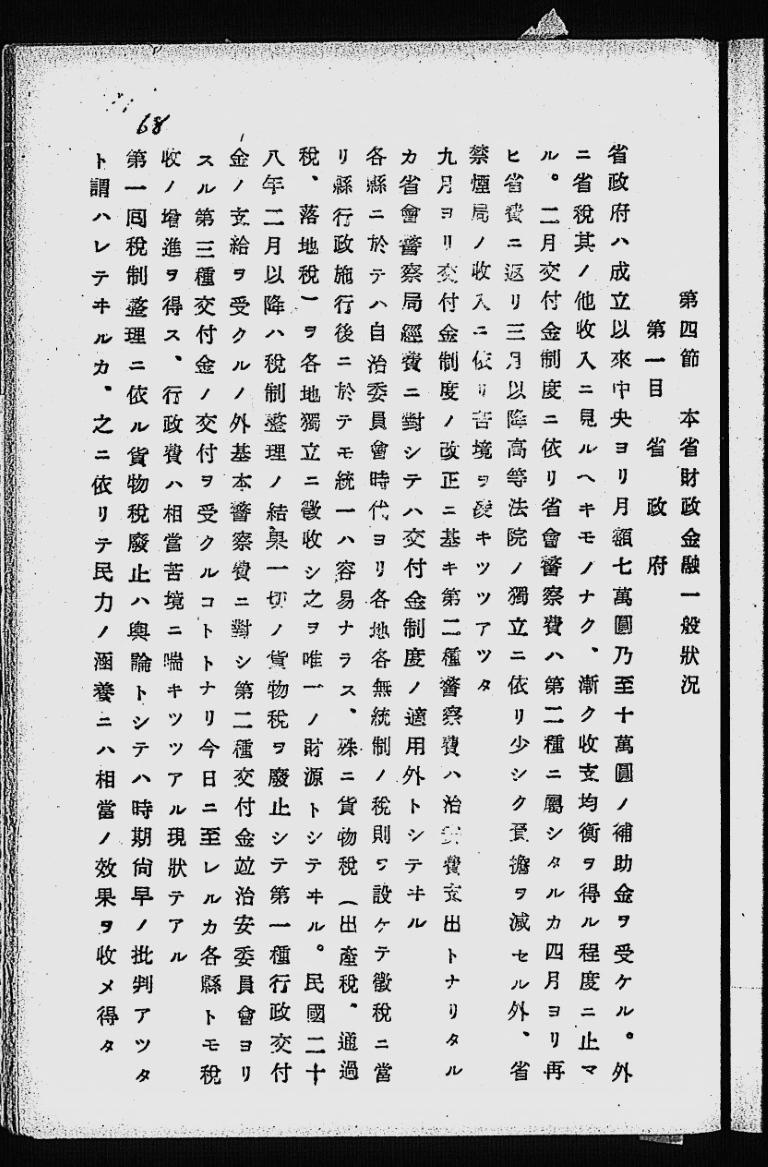 68
第四節　本省財政金融一般狀況
第一目　省政府
省政府ハ成立以來中央ヨリ月額七萬圓乃至十萬圓ノ補助金ヲ受ケル。外
ニ省稅其ノ他收入ニ見ルヘキモノナク、漸ク收支均衡ヲ得ル程度ニ止マ
ル。二月交付金制度ニ依リ省會警察費ハ第二種ニ屬シタルカ四月ヨリ再
ヒ省費ニ返リ三月以降高等法院ノ獨立ニ依リ少シク負擔ヲ減セル外、省
禁煙局ノ收入ニ依リ苦境ヲ凌キツツアツタ
九月ヨリ交付金制度ノ改正ニ基キ第二種警察費ハ治安費支出トナリタル
カ省會警察局經費ニ對シテハ交付金制度ノ適用外トシテヰル
各縣ニ於テハ自治委員會時代ヨリ各地各無統制ノ稅則ヲ設ケテ徵稅ニ當
リ縣行政施行後ニ於テモ統一ハ容易ナラス、殊ニ貨物稅（出產稅、通過
稅、落地稅）ヲ各地獨立ニ徵收シ之ヲ唯一ノ財源トシテヰル。民國二十
八年二月以降ハ稅制整理ノ結果一切ノ貨物稅ヲ廢止シテ第一種行政交付
金ノ支給ヲ受クルノ外基本警察費ニ對シ第二種交付金竝治安委員會ヨリ
スル第三種交付金ノ交付ヲ受クルコトトナリ今日ニ至レルカ各縣トモ稅
收ノ增進ヲ得ス、行政費ハ相當苦境ニ喘キツツアル現狀テアル
第一囘稅制整理ニ依ル貨物稅廢止ハ輿論トシテハ時期尙早ノ批判アツタ
ト謂ハレテヰルカ、之ニ依リテ民力ノ涵養ニハ相當ノ效果ヲ收メ得タ